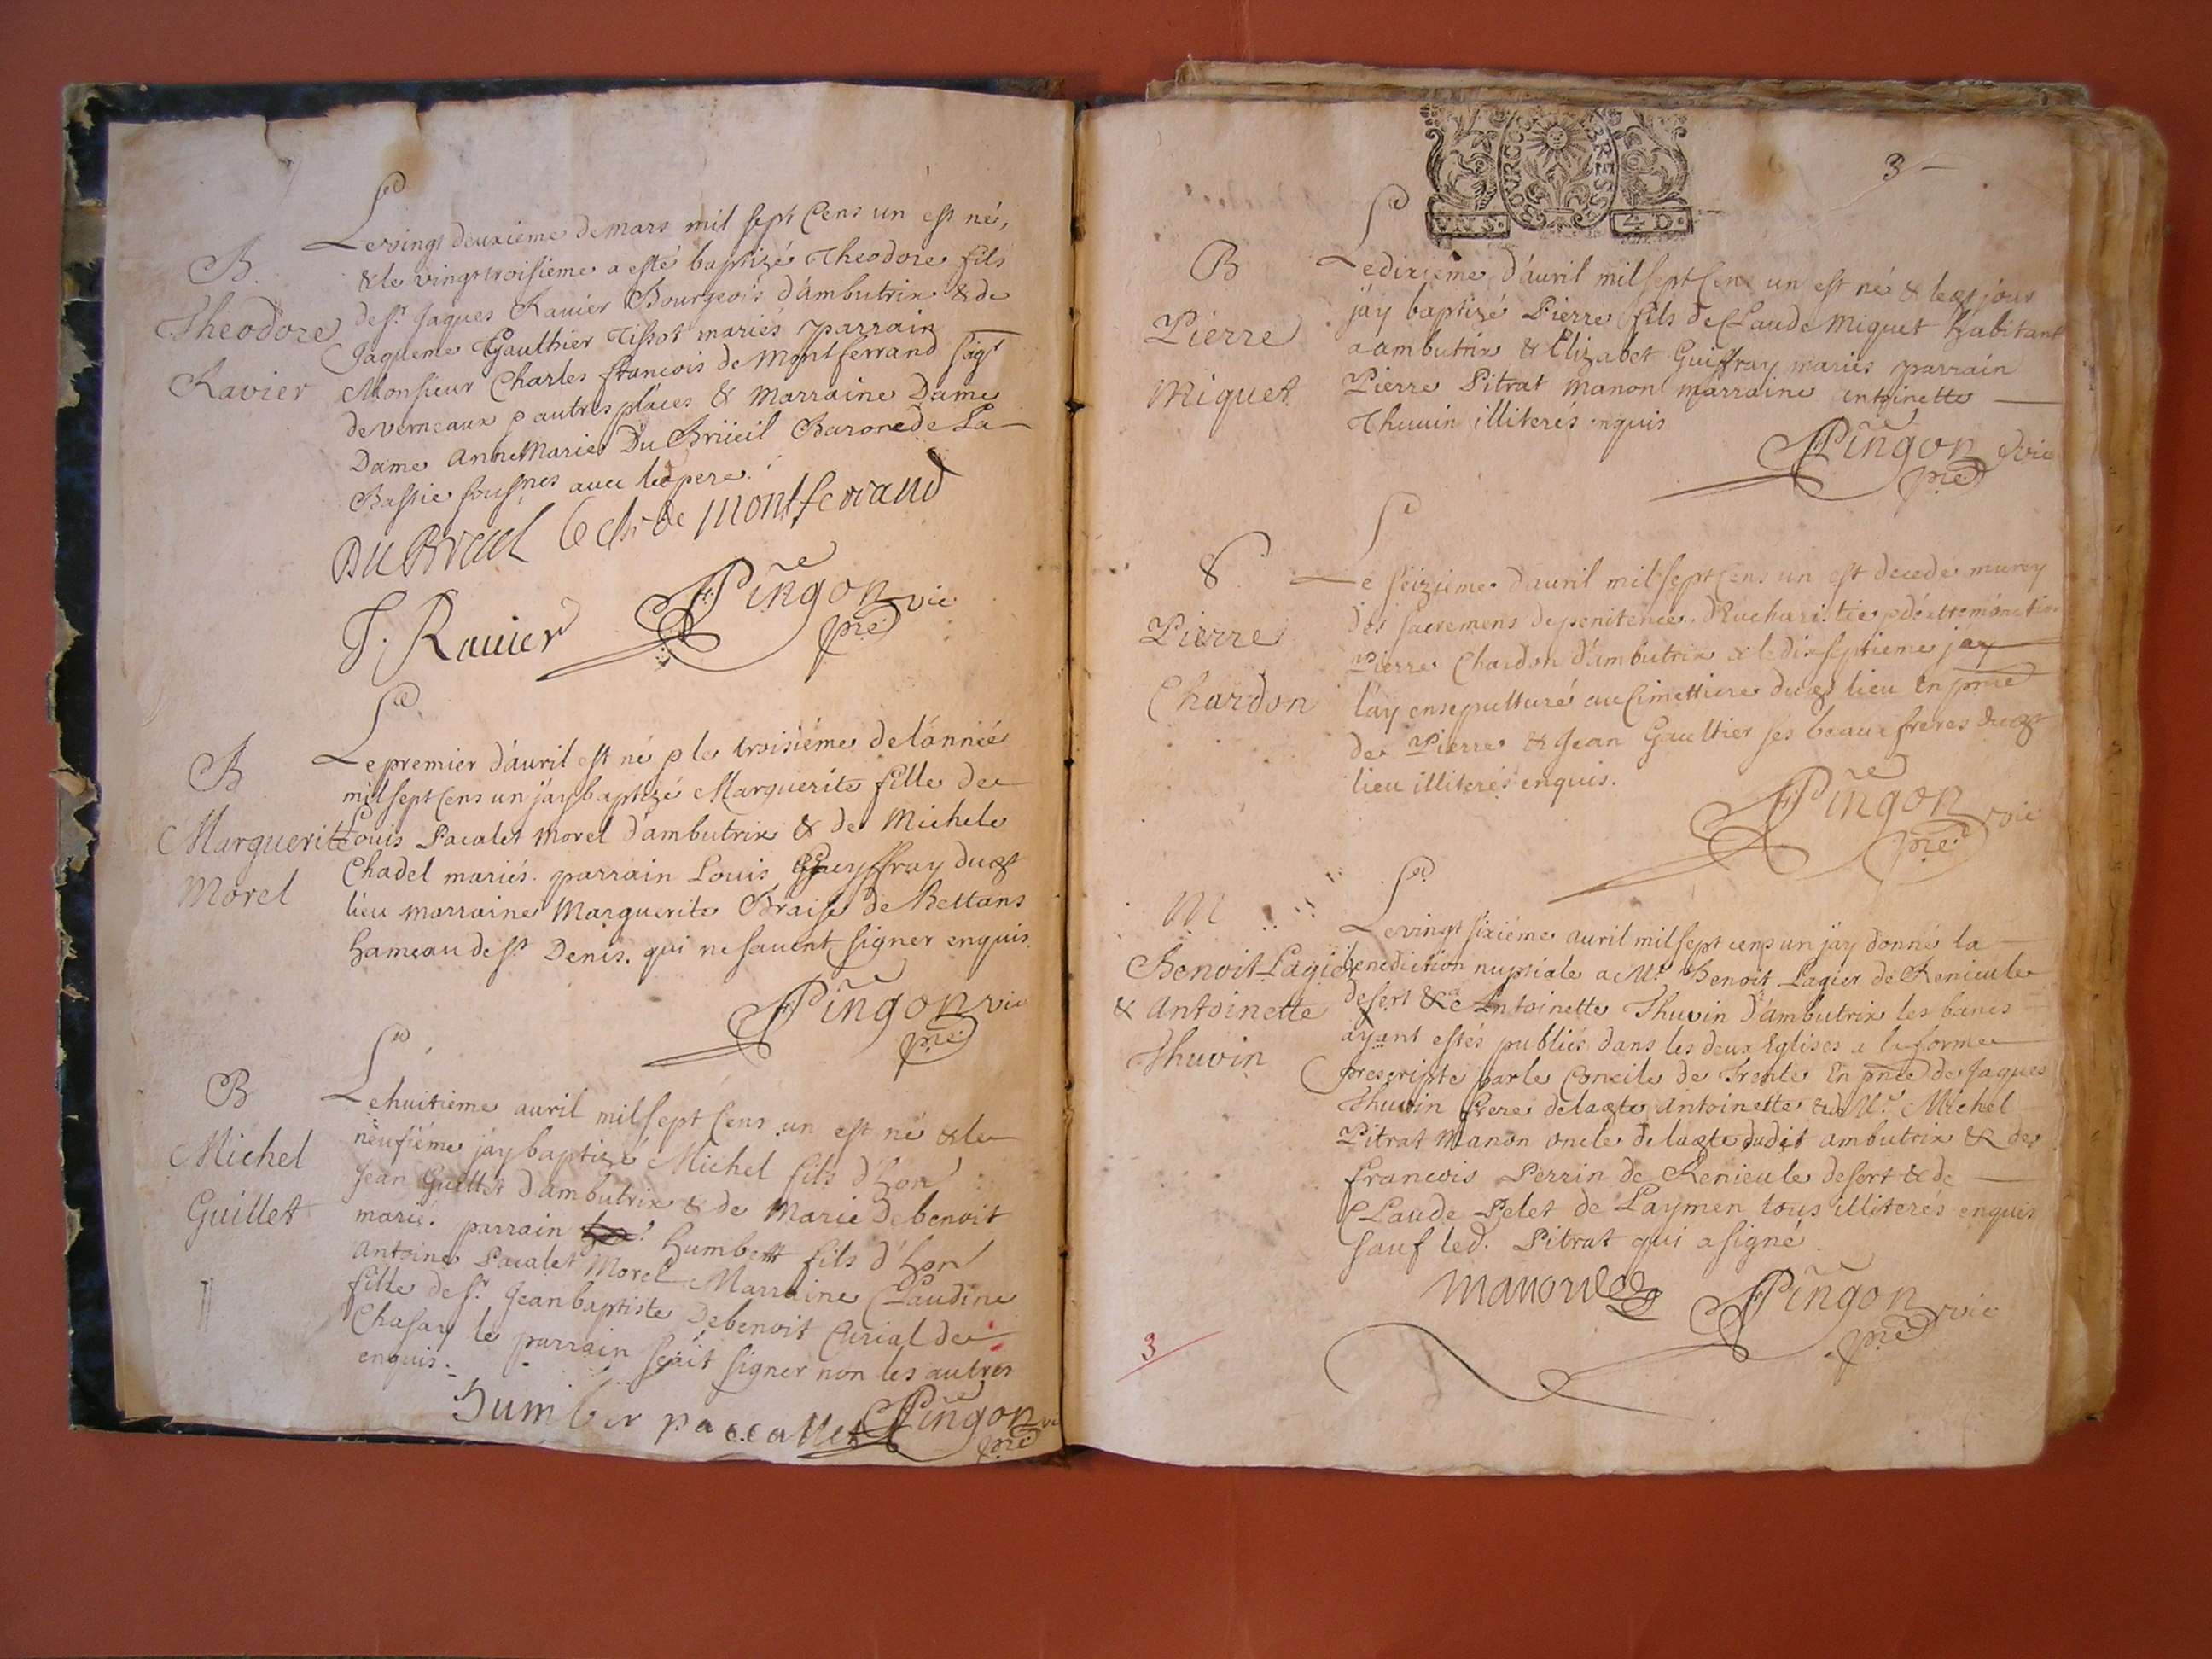 B.
Theodore
Ravier
Le vingt deuxieme de mars mil sept Cens un est né,
& le vingt troisieme a esté baptizé Theodore fils
de Sr. Jaques Ravier Bourgeois d'ambutrix & de
Jaqueme Gaulthier Tissot mariés parrain
Monsieur Charles francois de Montferrand sigr
de verneaux p autres places & Marraine Dame
Dame Anne Marie Du Brüeil Barone de La
Bastie sousnes avec le pere.
Du Breül le chr de montferrand
J. Ravier Pingon vic
pnē
B
Marguerite
Morel
Le premier d'avril est né p le troisiéme de l'année
mil sept Cens un j'ay baptizé Marguerite fille de
Louis Pacalet Morel d'ambutrix & de Michele
Chadel mariés. parrain Louis Gueyffray dudt
lieu marraine Marguerite Braise de Bettans
hameau de St Denis. qui ne savent signer enquis.
Pingon vic
B
Michel
Guillet
Le huitieme avril mil sept Cens un est né & le
neufiéme j'ay baptizé Michel fils d'hon
Jean Guillet d'ambutrix & de Marie Debenoit
mariés. parrain humbert fils d'hon
Antoine Pacalet Morel Marraine Claudine
fille de Sr. Jean baptiste Debenoit Curial de
Chasay le parrain sçait signer non les autres
enquis.
humber paccallet Pingon vic
3
VN S. BOURG BRES 4 D.
B
Pierre
Miguet
Le dixieme d'avril mil sept Cens un est né & led jour
j'ay baptizé Pierre fils de Claude Miguet habitant
a ambutrix & Elizabet Guiffray mariés parrain
Pierre Pitrat Manon marraine antoinette
Thuvin illiterés enquis
Pingon vic
S
Pierre
Chardon
Le seizieme d'avril mil sept Cens un est decedé muny
des sacremens de penitence. d'Eucharistie p d'extremonction
Pierre Chardon d'ambutrix & le dixseptieme jay
l'ay ensepulturé au Cimettiere dudt lieu En pnce
de Pierre & Jean Gaultier ses beaux freres dudt
lieu illiterés enquis.
Pingon vic
M
Benoit Lagier
& Antoinette
Thuvin
Le vingt sixiéme avril mil sept cens un j'ay donné la
benediction nuptiale a Mr. Benoit Lagier de Renieule
desert & a Antoinette Thuvin d'ambutrix les bancs
ayant estés publiés dans les deux Eglises a la forme
prescripte par le Concile de Trente En pnce de Jaques
Thuvin frere de ladte Antoinette & de Mr. Michel
Pitrat Manon oncle de ladte dudit ambutrix & de
francois Perrin de Renieule desert & de
Claude Pelet de Laymen tous illiterés enquis
sauf led. Pitrat qui a signé
manon Pingon vic
3